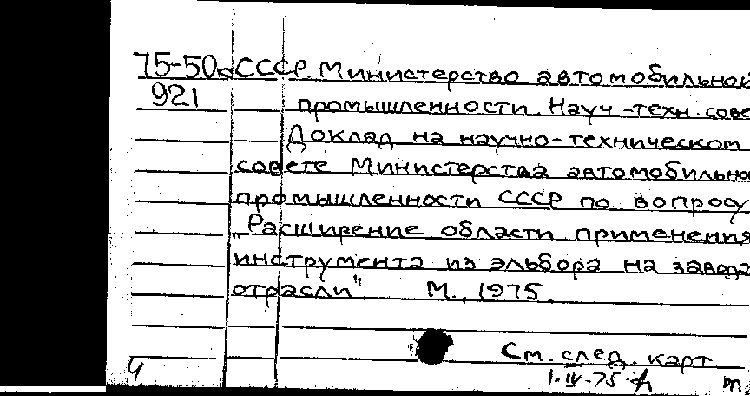 75-50 СССР. Министерство автомобильной
921 промышленности. Науч-техн. сове
Доклад на научно-техническом
совете Министерства автомобильно
промышленности СССР по вопросу
„Расширение области применения
инструмента из эльбора на завода
отрасли" М., 1975.
См. след. карт
1.IV-75
4